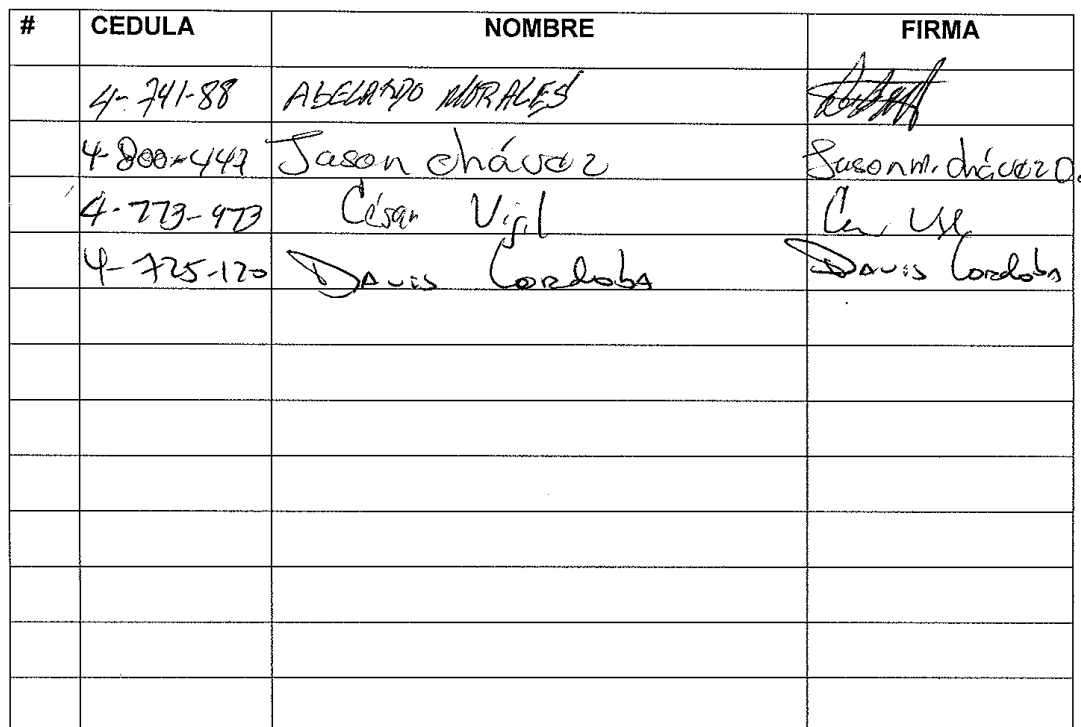 # CEDULA NOMBRE FIRMA
4-741-88 ABELARDO MORALES
4-800-447 Jason chávez Jason m. chávez O.
4-773-973 César Vigil
4-725-120 Davis Cordoba Davis Cordoba